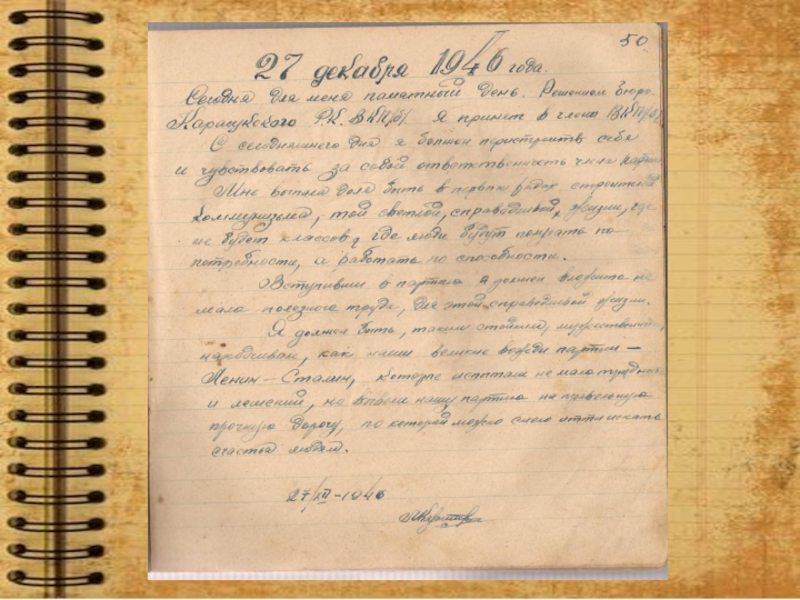 50
27 декабря 1946 года.
Сегодня для меня памятный день. Решением бюро
Карасукского Р.К. ВКП/б/. Я принят в члены ВКП/б/.
С сегодняшнего дня я должен перестроить себя
и чувствовать за собой ответственность члена партии
Мне выпала доля быть в первых рядах строителей
Коммунизма, той светлой, справедливой, жизни, где
не будет классов, где люди будут получать по
потребности, а работать по способности.
Вступивши в партию я должен вложить не
мало полезного труда, для этой справедливой жизни.
Я должен быть, таким стойким, мужественным,
как наши великие вожди партии –
Ленин – Сталин, которые испытали не мало трудностей
и лишений, но вывели нашу партию на правильную
прочную дорогу, по которой можно смело итти искать
счастья людям.
27/XII – 1946